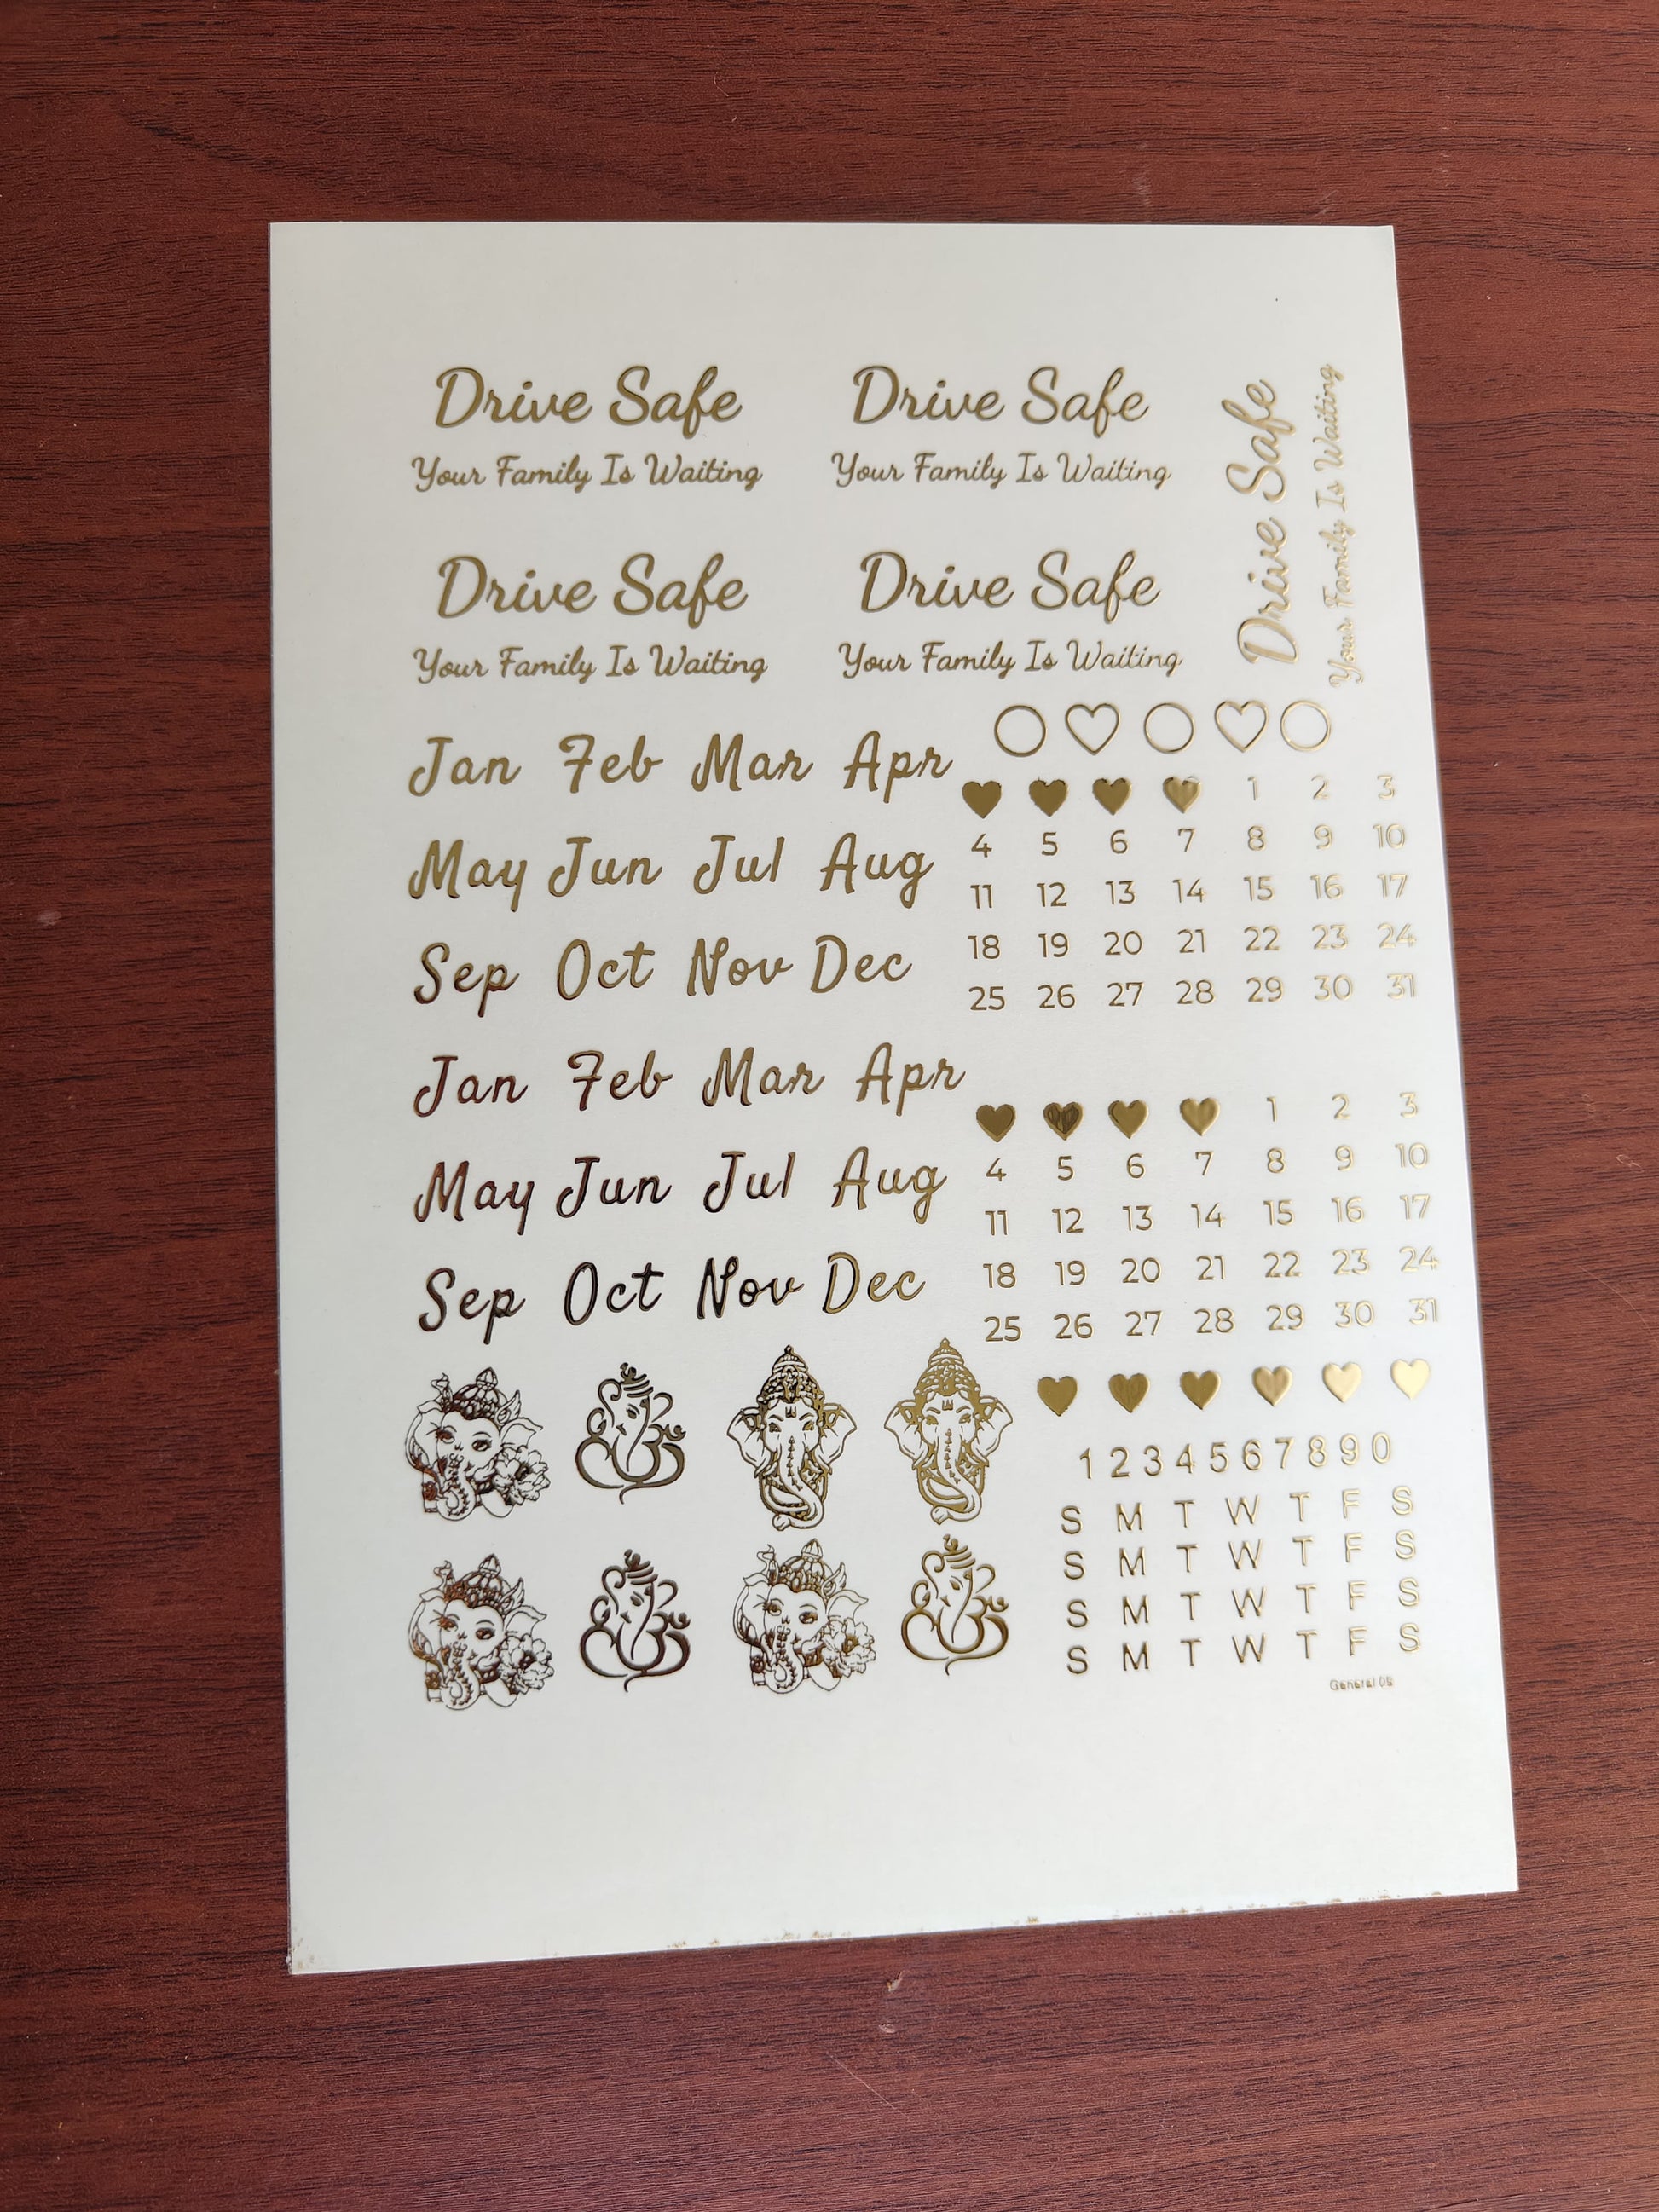 Drive Safe
Your Family Is Waiting
Drive Safe
Your Family Is Waiting
Drive Safe
Your Family Is Waiting
Drive Safe
Your Family Is Waiting
Drive Safe
Your Family Is Waiting
Jan Feb Mar Apr
May Jun Jul Aug
Sep Oct Nov Dec
1 2 3
4 5 6 7 8 9 10
11 12 13 14 15 16 17
18 19 20 21 22 23 24
25 26 27 28 29 30 31
Jan Feb Mar Apr
May Jun Jul Aug
Sep Oct Nov Dec
1 2 3
4 5 6 7 8 9 10
11 12 13 14 15 16 17
18 19 20 21 22 23 24
25 26 27 28 29 30 31
1 2 3 4 5 6 7 8 9 0
S M T W T F S
S M T W T F S
S M T W T F S
S M T W T F S
General